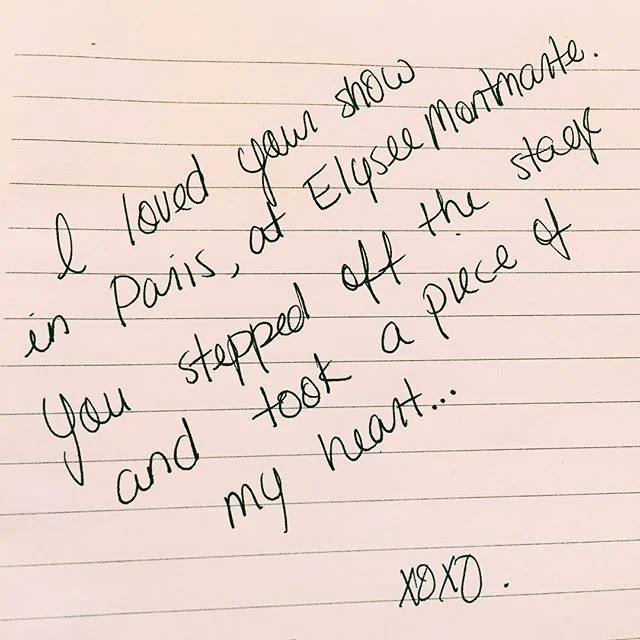 I loved your show
in Paris, at Elysee Montmarte.
You stepped off the stage
and took a piece of
my heart...
xoxo.